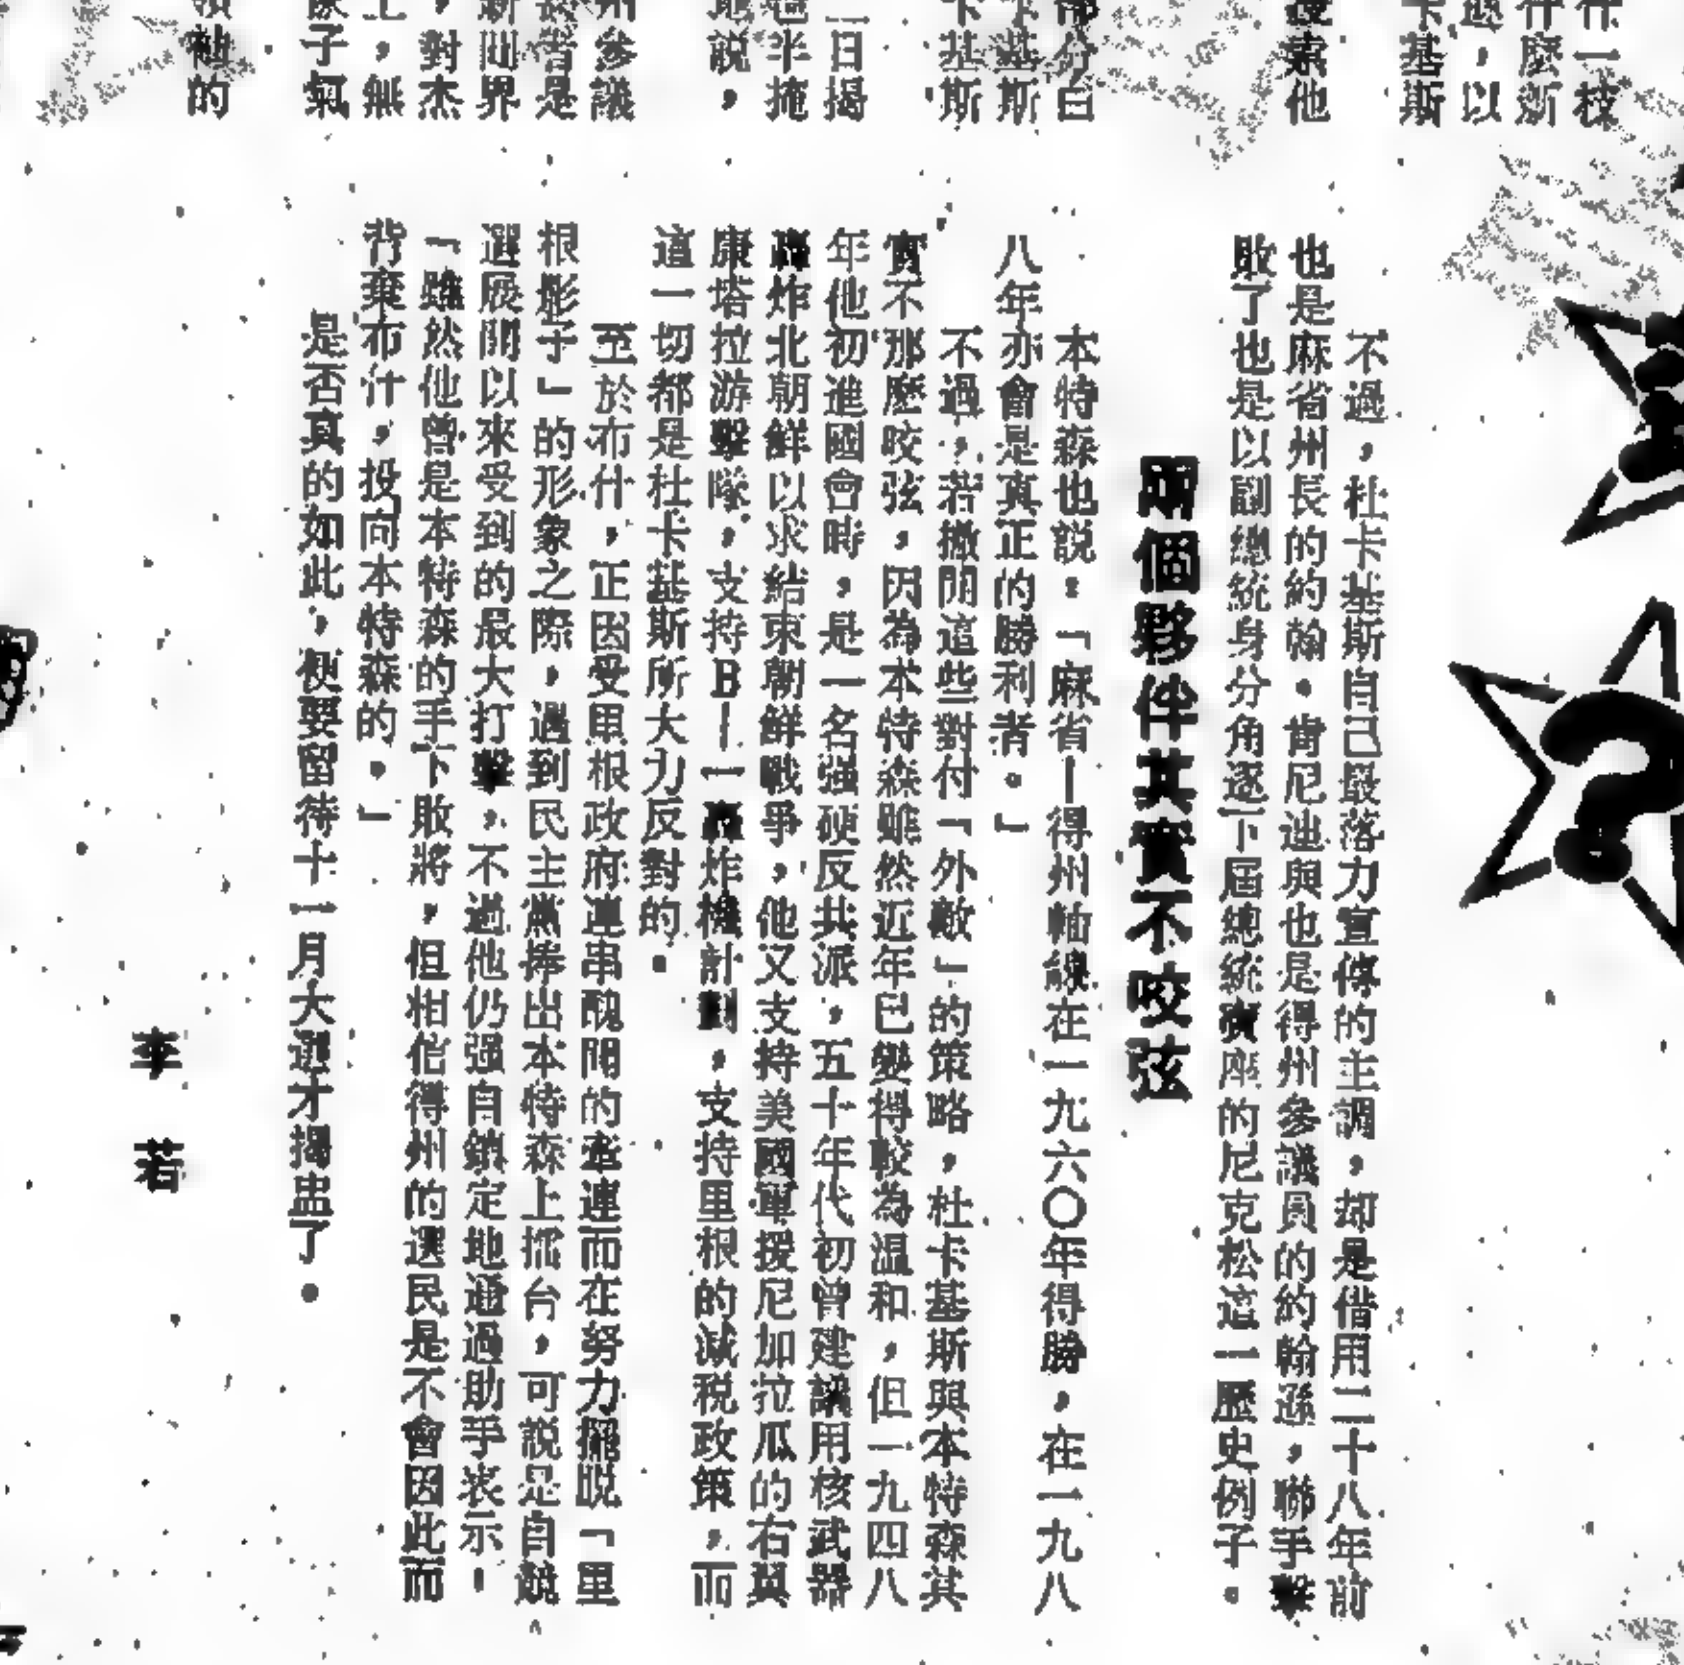 什一枝
什麼新
迷，以
卡基斯
搜索他
部分白
卡基斯
卡基斯
一日揭
也半掩
地說，
州參議
競者是
新聞界
，對杰
上，無
家子氣
領袖的
不過，杜卡基斯自己最落力宣傳的主調，却是借用二十八年前
也是麻省州長的約翰．肯尼迪與也是得州參議員的約翰遜，聯手擊
敗了也是以副總統身分角逐下屆總統寶座的尼克松這一歷史例子。
兩個夥伴其實不咬弦
本特森也説。「麻省—得州軸線在一九六〇年得勝，在一九八
八年亦會是真正的勝利者。」
不過，若撇開這些對付「外敵」的策略，杜卡基斯與本特森其
實不那麼咬弦，因為本特森雖然近年已變得較為溫和，但一九四八
年他初進國會時，是一名强硬反共派，五十年代初曾建議用核武器
轟炸北朝鮮以求結束朝鮮戰爭，他又支持美國軍援尼加拉瓜的右翼
康塔拉游擊隊，支持B—一轟炸機計劃，支持里根的減税政策，而
這一切都是杜卡基斯所大力反對的。
至於布什，正因受里根政府連串醜聞的牽連而在努力擺脱「里
根影子」的形象之際，遇到民主黨捧出本特森上擂台，可説是自競
選展開以來受到的最大打擊，不過他仍强自鎮定地通過助手表示：
「雖然他曾是本特森的手下敗將，但相信得州的選民是不會因此而
背棄布什，投向本特森的。」
是否真的如此，便要留待十一月大選才揭盅了。
李若